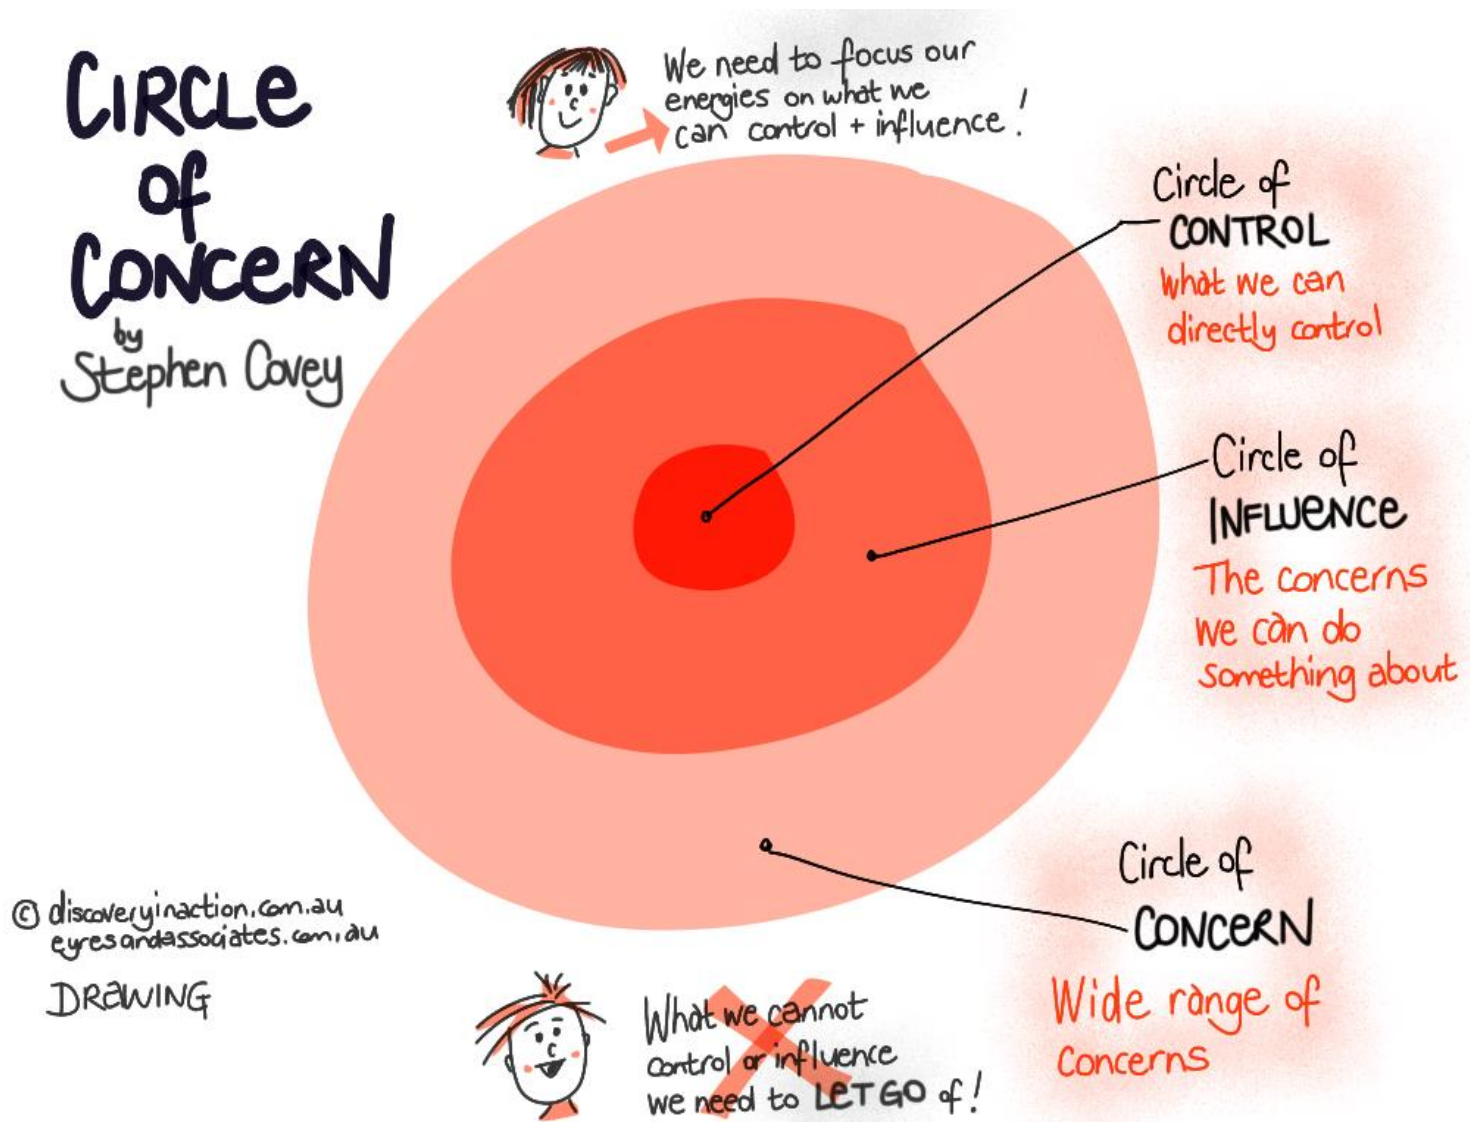 CIRCLE
OF
CONCERN
by
Stephen Covey
We need to focus our
energies on what we
can control + influence!
Circle of
CONTROL
What we can
directly control
Circle of
INFLUENCE
The concerns
we can do
something about
Circle of
CONCERN
Wide range of
Concerns
© discoveryinaction.com.au
eyresandassociates.com.au
DRAWING
What we cannot
control or influence
we need to LET GO of!